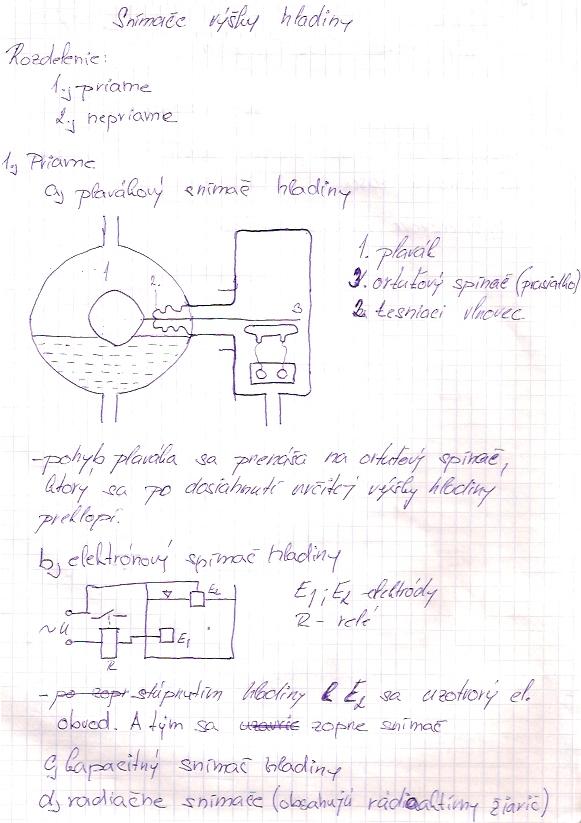 Snímače výšky hladiny
Rozdelenie:
1.) priame
2.) nepriame
1.) Priame
a) plavákový snímač hladiny
1
2.
3
1. plavák
3. ortuťový spínač (prasiatko)
2. tesniaci vlnovec
-pohyb plaváka sa prenáša na ortuťový spínač,
ktorý sa po dosiahnutí určitej výšky hladiny
preklopí.
b) elektrónový spímač hladiny
E2
~U
E1
R
E1; E2 - elektródy
R - relé
- po zopr stúpnutím hladiny k E2 sa uzotvorý el.
obvod. A tým sa uzavrie zopne snímač
c) kapacitný snímač hladiny
d) radiačne snímače (obsahujú rádioaktívny žiarič)